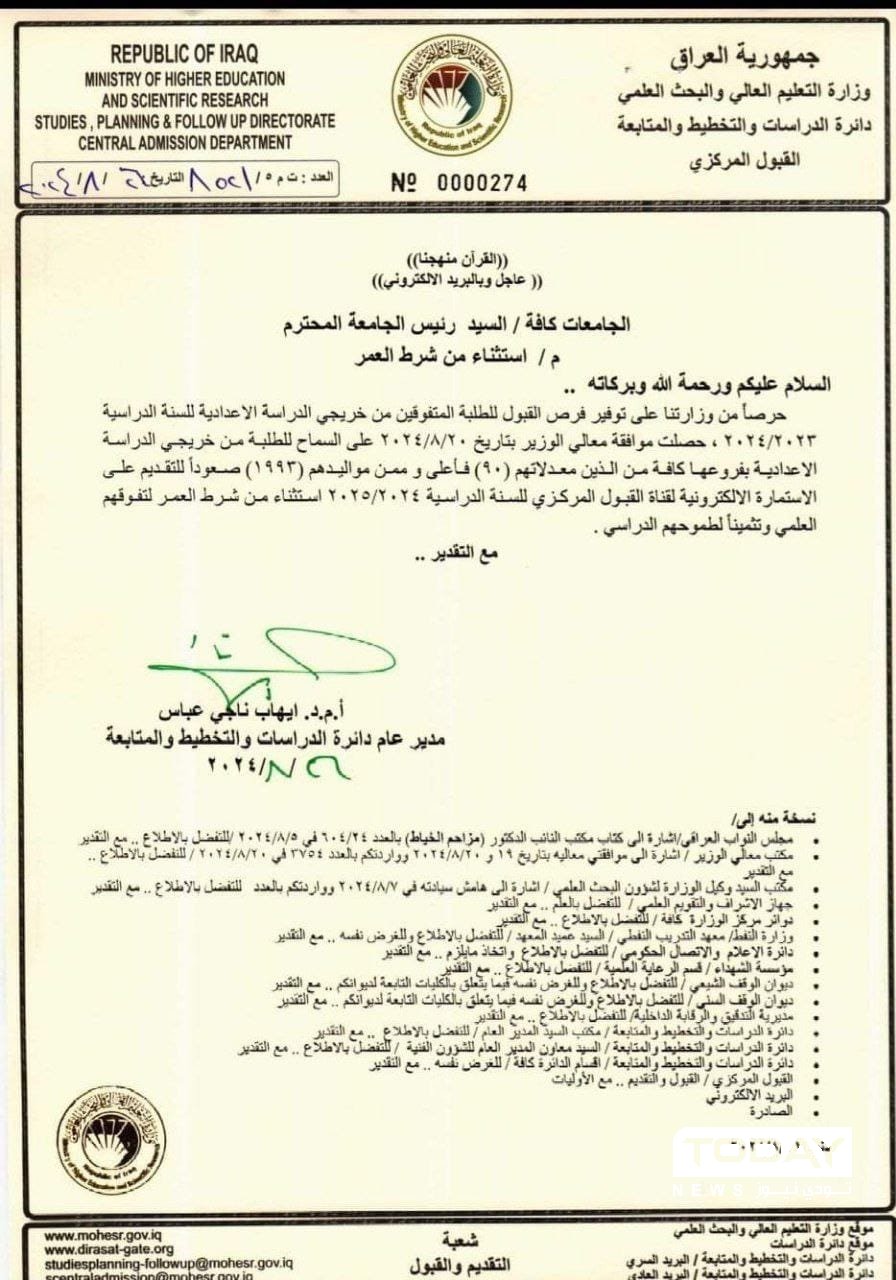 REPUBLIC OF IRAQ
MINISTRY OF HIGHER EDUCATION
AND SCIENTIFIC RESEARCH
STUDIES , PLANNING & FOLLOW UP DIRECTORATE
CENTRAL ADMISSION DEPARTMENT
جمهورية العراق
وزارة التعليم العالي والبحث العلمي
دائرة الدراسات والتخطيط والمتابعة
القبول المركزي
Republic of Iraq
Ministry of Higher Education and Scientific Research
العدد : ت م ٥/ التاريخ
№ 0000274
((القرآن منهجنا))
(( عاجل وبالبريد الالكتروني))
الجامعات كافة / السيد رئيس الجامعة المحترم
م / استثناء من شرط العمر
السلام عليكم ورحمة الله وبركاته ..
حرصاً من وزارتنا على توفير فرص القبول للطلبة المتفوقين من خريجي الدراسة الاعدادية للسنة الدراسية
٢٠٢٤/٢٠٢٣ ، حصلت موافقة معالي الوزير بتاريخ ٢٠٢٤/٨/٢٠ على السماح للطلبة من خريجي الدراسة
الاعدادية بفروعها كافة من الذين معدلاتهم (٩٠) فأعلى و ممن مواليدهم (١٩٩٣) صعوداً للتقديم على
الاستمارة الالكترونية لقناة القبول المركزي للسنة الدراسية ٢٠٢٥/٢٠٢٤ استثناء من شرط العمر لتفوقهم
العلمي وتثميناً لطموحهم الدراسي .
مع التقدير ..
أ.م.د. ايهاب ناجي عباس
مدير عام دائرة الدراسات والتخطيط والمتابعة
٢٠٢٤/
نسخة منه إلى/
• مجلس النواب العراقي/اشارة الى كتاب مكتب النائب الدكتور (مزاحم الخياط) بالعدد ٦٠٤/٢٤ في ٢٠٢٤/٨/٥ /للتفضل بالاطلاع .. مع التقدير
• مكتب معالي الوزير / اشارة الى موافقتي معاليه بتاريخ ١٩ و ٢٠٢٤/٨/٢٠ وواردتكم بالعدد ٣٧٥٤ في ٢٠٢٤/٨/٢٠ / للتفضل بالاطلاع ..
مع التقدير
• مكتب السيد وكيل الوزارة لشؤون البحث العلمي / اشارة الى هامش سيادته في ٢٠٢٤/٨/٧ وواردتكم بالعدد للتفضل بالاطلاع .. مع التقدير
• جهاز الاشراف والتقويم العلمي / للتفضل بالعلم .. مع التقدير
• دوائر مركز الوزارة كافة / للتفضل بالاطلاع .. مع التقدير
• وزارة النفط/ معهد التدريب النفطي / السيد عميد المعهد / للتفضل بالاطلاع وللغرض نفسه .. مع التقدير
• دائرة الاعلام والاتصال الحكومي / للتفضل بالاطلاع واتخاذ مايلزم .. مع التقدير
• مؤسسة الشهداء / قسم الرعاية العلمية / للتفضل بالاطلاع .. مع التقدير
• ديوان الوقف الشيعي / للتفضل بالاطلاع وللغرض نفسه فيما يتعلق بالكليات التابعة لديوانكم .. مع التقدير
• ديوان الوقف السني / للتفضل بالاطلاع وللغرض نفسه فيما يتعلق بالكليات التابعة لديوانكم .. مع التقدير
• مديرية التدقيق والرقابة الداخلية/ للتفضل بالاطلاع .. مع التقدير
• دائرة الدراسات والتخطيط والمتابعة / مكتب السيد المدير العام / للتفضل بالاطلاع .. مع التقدير
• دائرة الدراسات والتخطيط والمتابعة / السيد معاون المدير العام للشؤون الفنية / للتفضل بالاطلاع .. مع التقدير
• دائرة الدراسات والتخطيط والمتابعة / اقسام الدائرة كافة / للغرض نفسه .. مع التقدير
• القبول المركزي / القبول والتقديم .. مع الأوليات
• البريد الالكتروني
• الصادرة
TODAY
NEWS تودي نيوز
www.mohesr.gov.iq
www.dirasat-gate.org
studiesplanning-followup@mohesr.gov.iq
scentraladmission@mohesr.gov.iq
شعبة
التقديم والقبول
موقع وزارة التعليم العالي والبحث العلمي
موقع دائرة الدراسات
دائرة الدراسات والتخطيط والمتابعة / البريد السري
دائرة الدراسات والتخطيط والمتابعة / البريد العادي